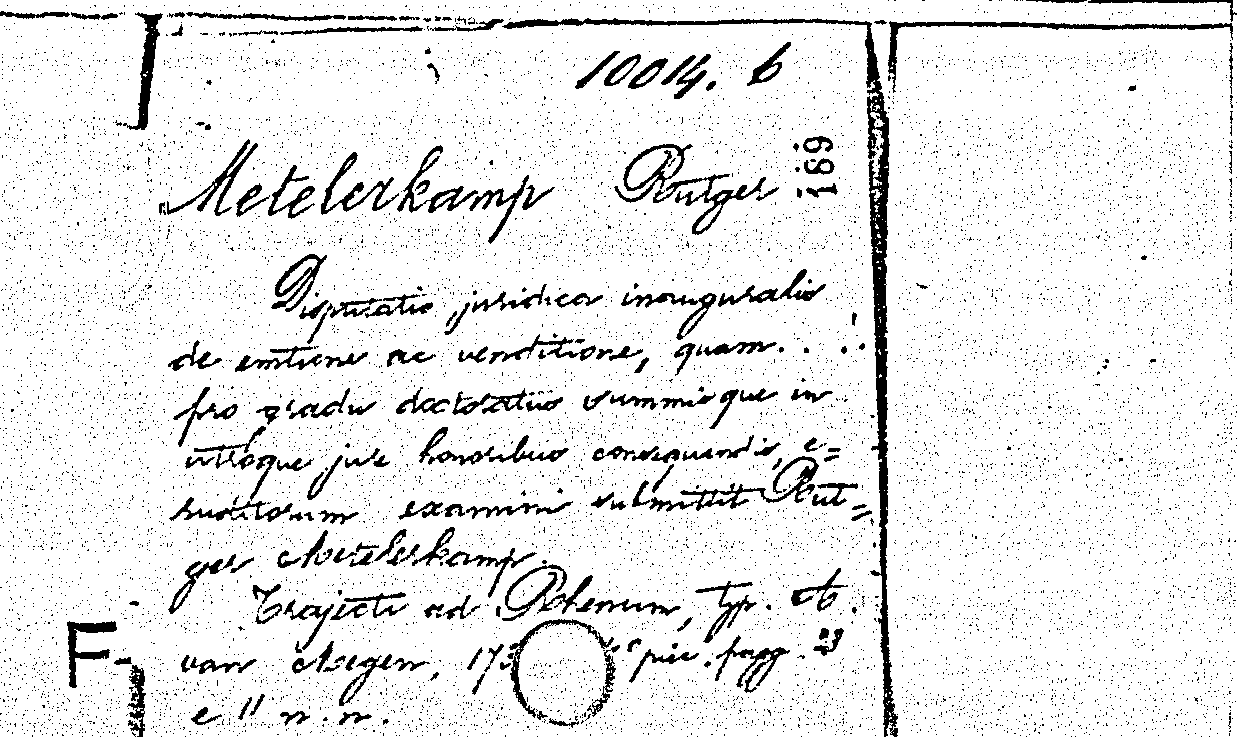 10014. b
189
Metelerkamp Rutger
Disputatio juridica inauguralis
de emtione ac venditione, quam. . . .
pro gradu doctoratus summisque in
utroque jure honoribus consequendis, e=
ruditorum examini submittit Rut=
ger Metelerkamp.
Trajecti ad Rhenum, typ. A.
van Megen, 173 pic. pagg. 23
e 11 n. n.
F